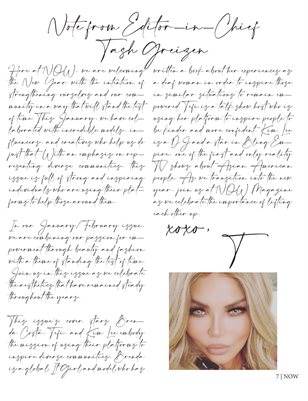 Note from Editor-in-Chief
Tash Greizen
Here at NOW, we are welcoming
the New Year with the intention of
strengthening ourselves and our com-
munity in a way that will stand the test
of time. This January, we have col-
laborated with incredible models, in-
fluencers, and creatives who help us do
just that. With an emphasis on rep-
resenting diverse communities, this
issue is full of strong and inspiring
individuals who are using their plat-
forms to help those around them.
In our January/February issue,
we are combining our passion for em-
powerment through beauty and fashion
with a theme of standing the test of time.
Join us in this issue as we celebrate
the aesthetics that have remained steady
throughout the years.
This issue's cover stars Bren-
da Costa, Tefi, and Kim Lee embody
the mission of using their platforms to
inspire diverse communities. Brenda
is a global It Girl and model who has
written a book about her experiences as
a deaf woman in order to inspire those
in similar situations to remain em-
powered. Tefi is a talk show host who is
using her platform to inspire people to
be kinder and more confident. Kim Lee
is a DJ and a star in Bling Em-
pire, one of the first and only reality
TV shows about Asian American
people. As we transition into the new
year, join us at NOW Magazine
as we celebrate the importance of lifting
each other up.
xoxo,
T
7 | NOW